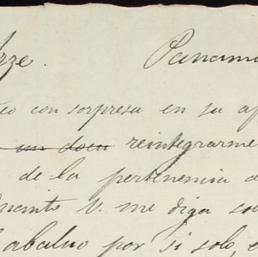 rze. Panamá
eo con sorpresa en su ap
un docu reintegrarme
de la pertenencia d
V. me diga so
abaluo por si solo, e